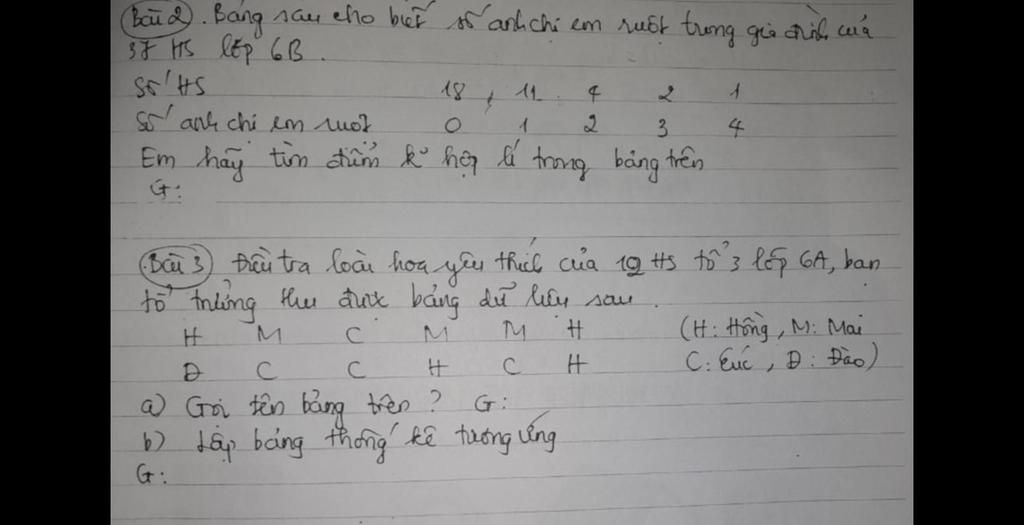 Bài 2. Bảng sau cho biết số anh chị em ruột trong gia đình của
37 HS lớp 6B.
Số HS 18, 11 4 2 1
Số anh chị em ruột 0 1 2 3 4
Em hãy tìm điểm k° hợp lí trong bảng trên
G:
Bài 3 Điều tra loài hoa yêu thích của 12 HS tổ 3 lớp 6A, bạn
tổ trưởng thu được bảng dữ liệu sau.
H M C M M H (H: Hồng, M: Mai
Đ C C H C H C: Cúc, Đ: Đào)
a) Gọi tên bảng trên? G:
b) Lập bảng thống kê tương ứng
G: